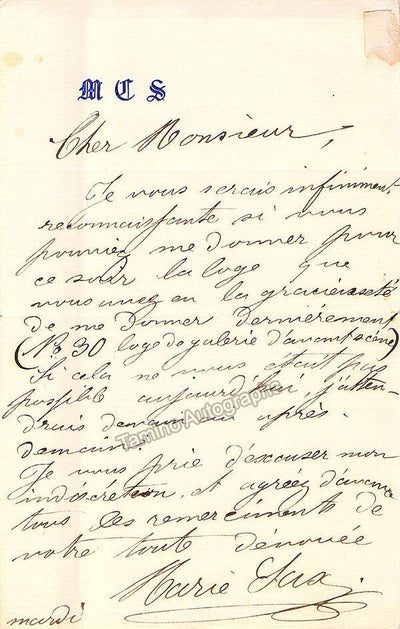 M C S
Cher Monsieur,
Je vous serais infiniment
reconnaissante si vous
pouviez me donner pour
ce soir la loge que
vous avez eu la gracieuseté
de me donner dernièrement
(No 30 loge de galerie d'avant scène)
Si cela ne vous était pas
possible aujourd'hui, j'atten-
drais demain ou après.
demain.
Je vous prie d'excuser mon
indiscrétion, et agréez d'avance
tous les remerciments de
votre toute dévouée
Marie Sax
mardi
Tamino Autographs